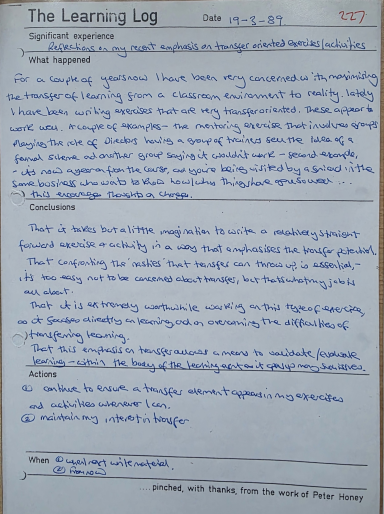 The Learning Log Date 19-3-89 227
Significant experience
Reflections on my recent emphasis on transfer oriented exercises/activities
What happened
For a couple of years now I have been very concerned with maximising
the transfer of learning from a classroom environment to reality. Lately
I have been writing exercises that are very transfer oriented. These appear to
work well. A couple of examples - the mentoring exercise that involves groups
playing the role of Directors having a group of trainers sell the idea of a
formal scheme and another group saying it wouldn't work - second example,
- it's now a year on from the course, and you're being visited by a friend in the
same business who wants to know how/why things have
this encourages thoughts
Conclusions
That it takes but a little imagination to write a relatively straight
forward exercise or activity in a way that emphasises the transfer potential.
That confronting the realities that transfer can throw up is essential, -
it's too easy not to be concerned about transfer, but that's what my job is
all about.
That it is extremely worthwhile working on this type of exercise,
as it focuses directly on learning and on overcoming the difficulties of
transferring learning.
That this emphasis on transfer allows a means to validate/evaluate
learning - within the body of the learning event
Actions
① continue to ensure a transfer element appears in my exercises
and activities whenever I can.
② maintain my interest in transfer
When ① when I next write material.
② from now
....pinched, with thanks, from the work of Peter Honey